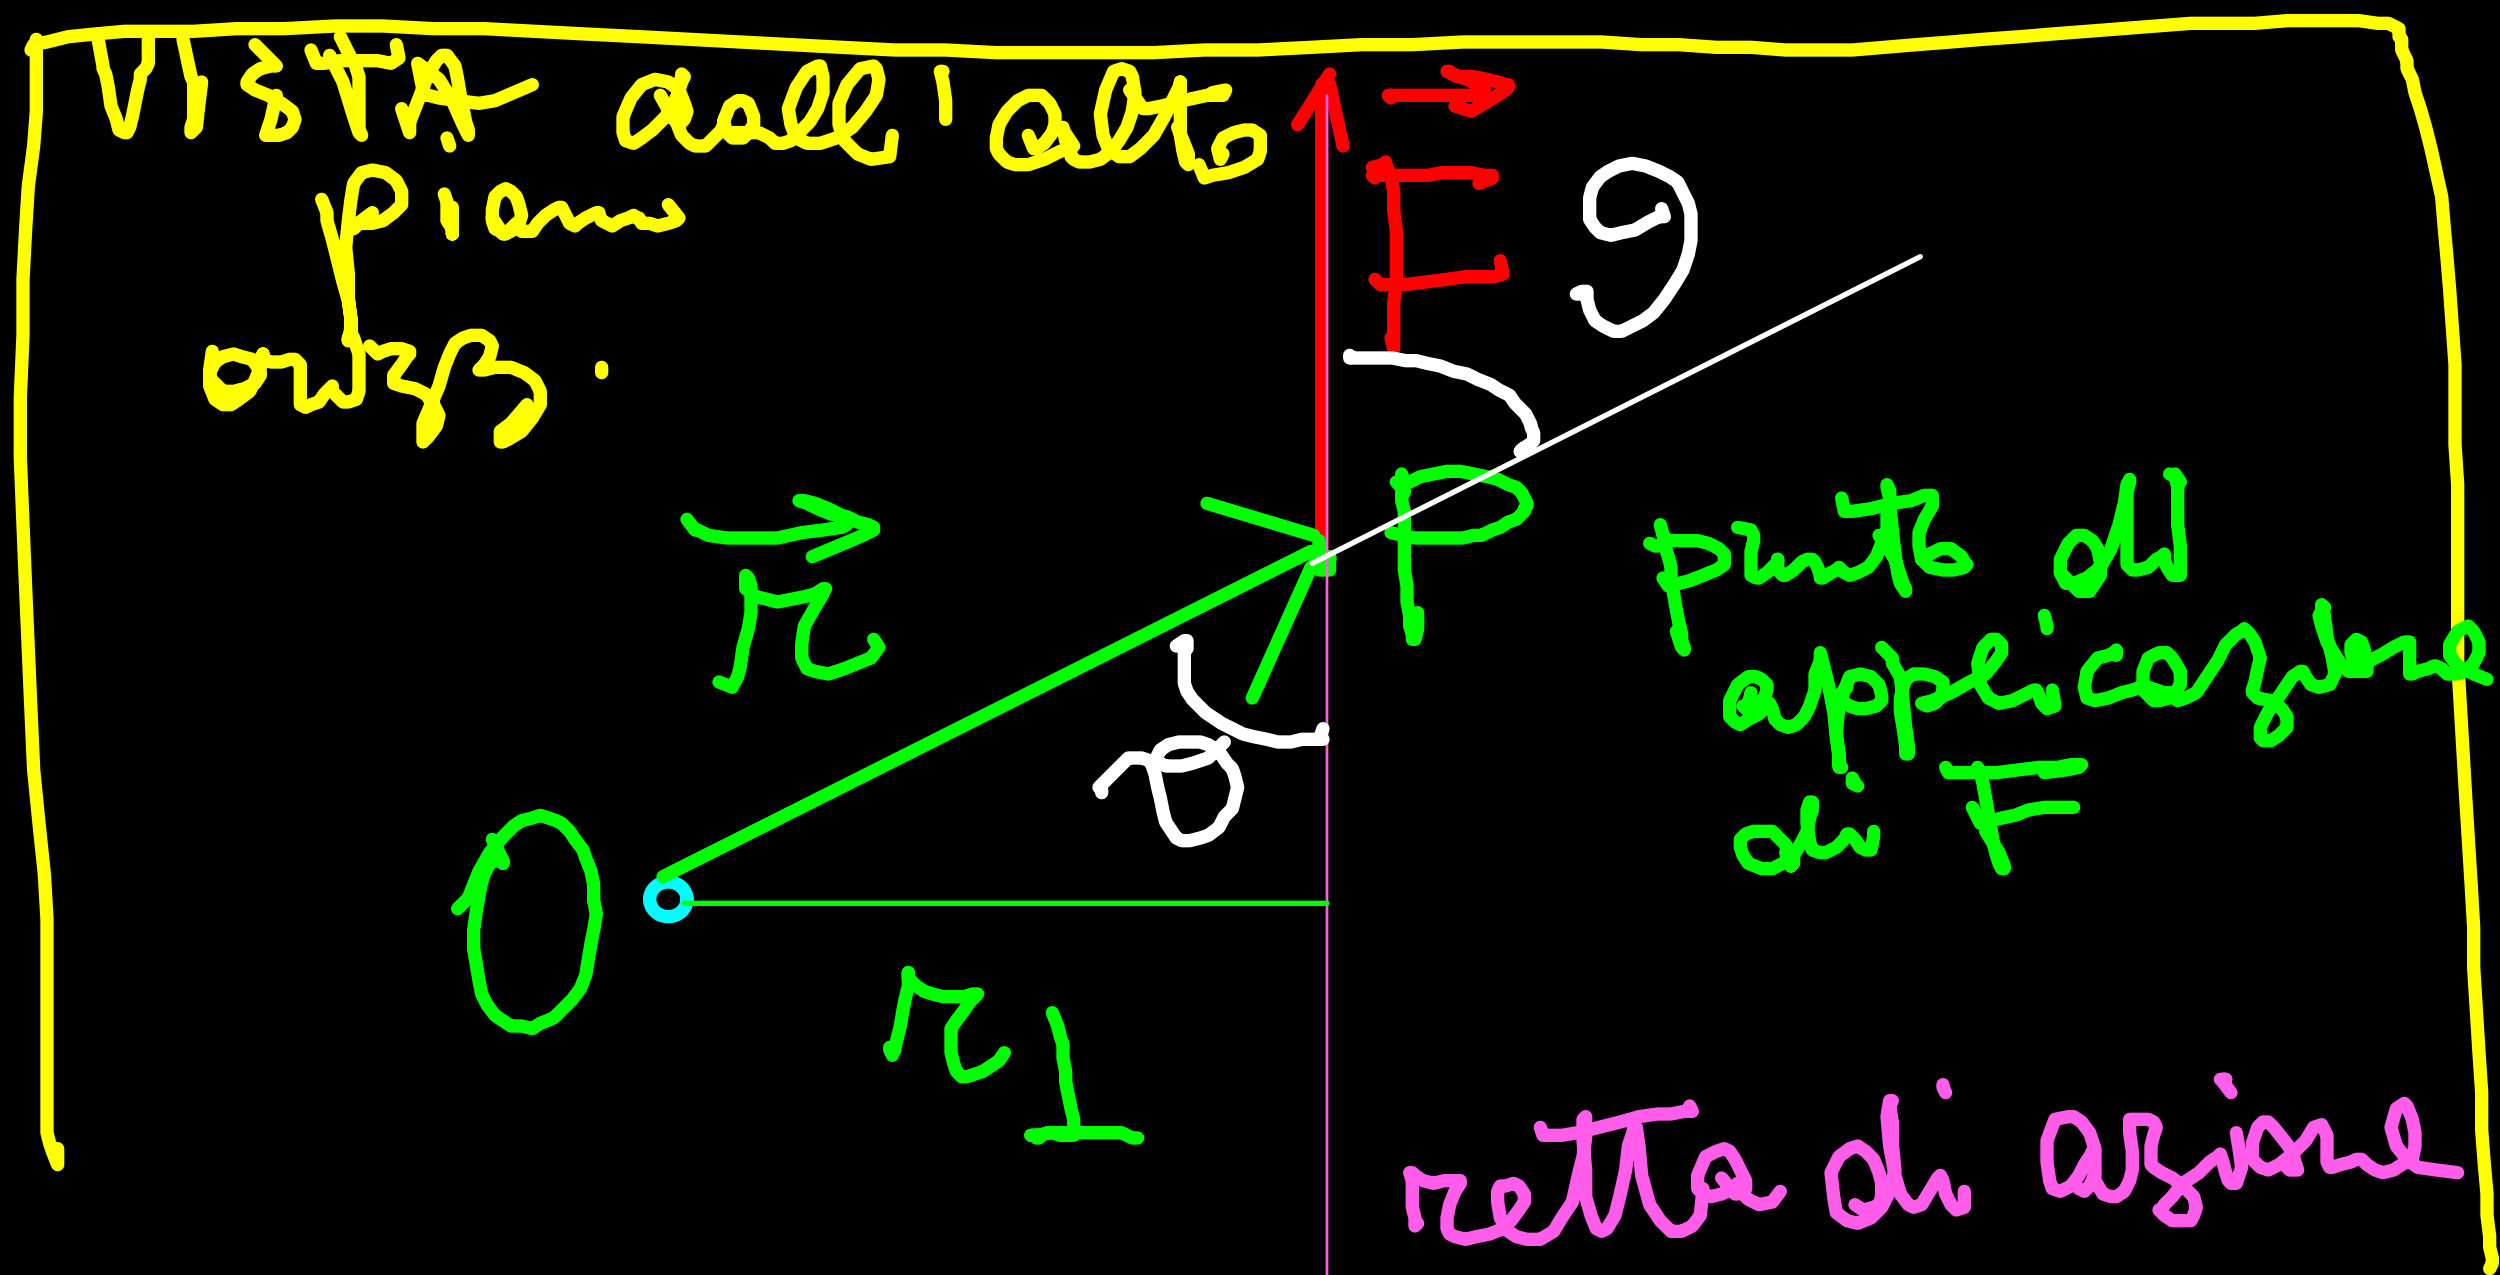 VISTA dall'alto
piano
orizz.
F
P
punto di
applicazione
di F
r
O
r1
retta di azione